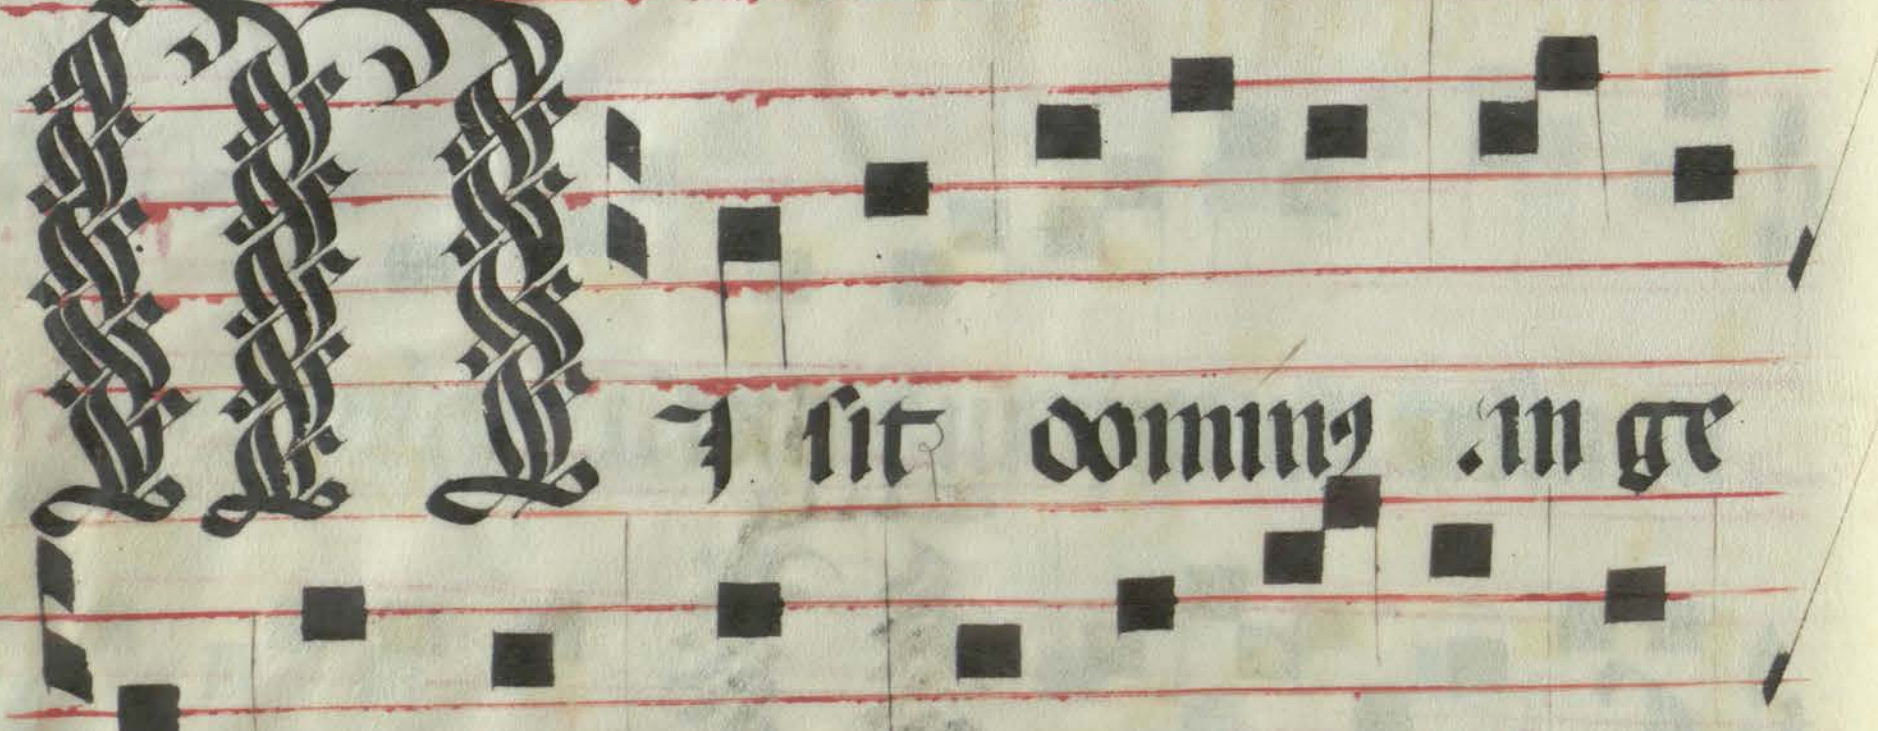 MIsit dominꝰ an ge